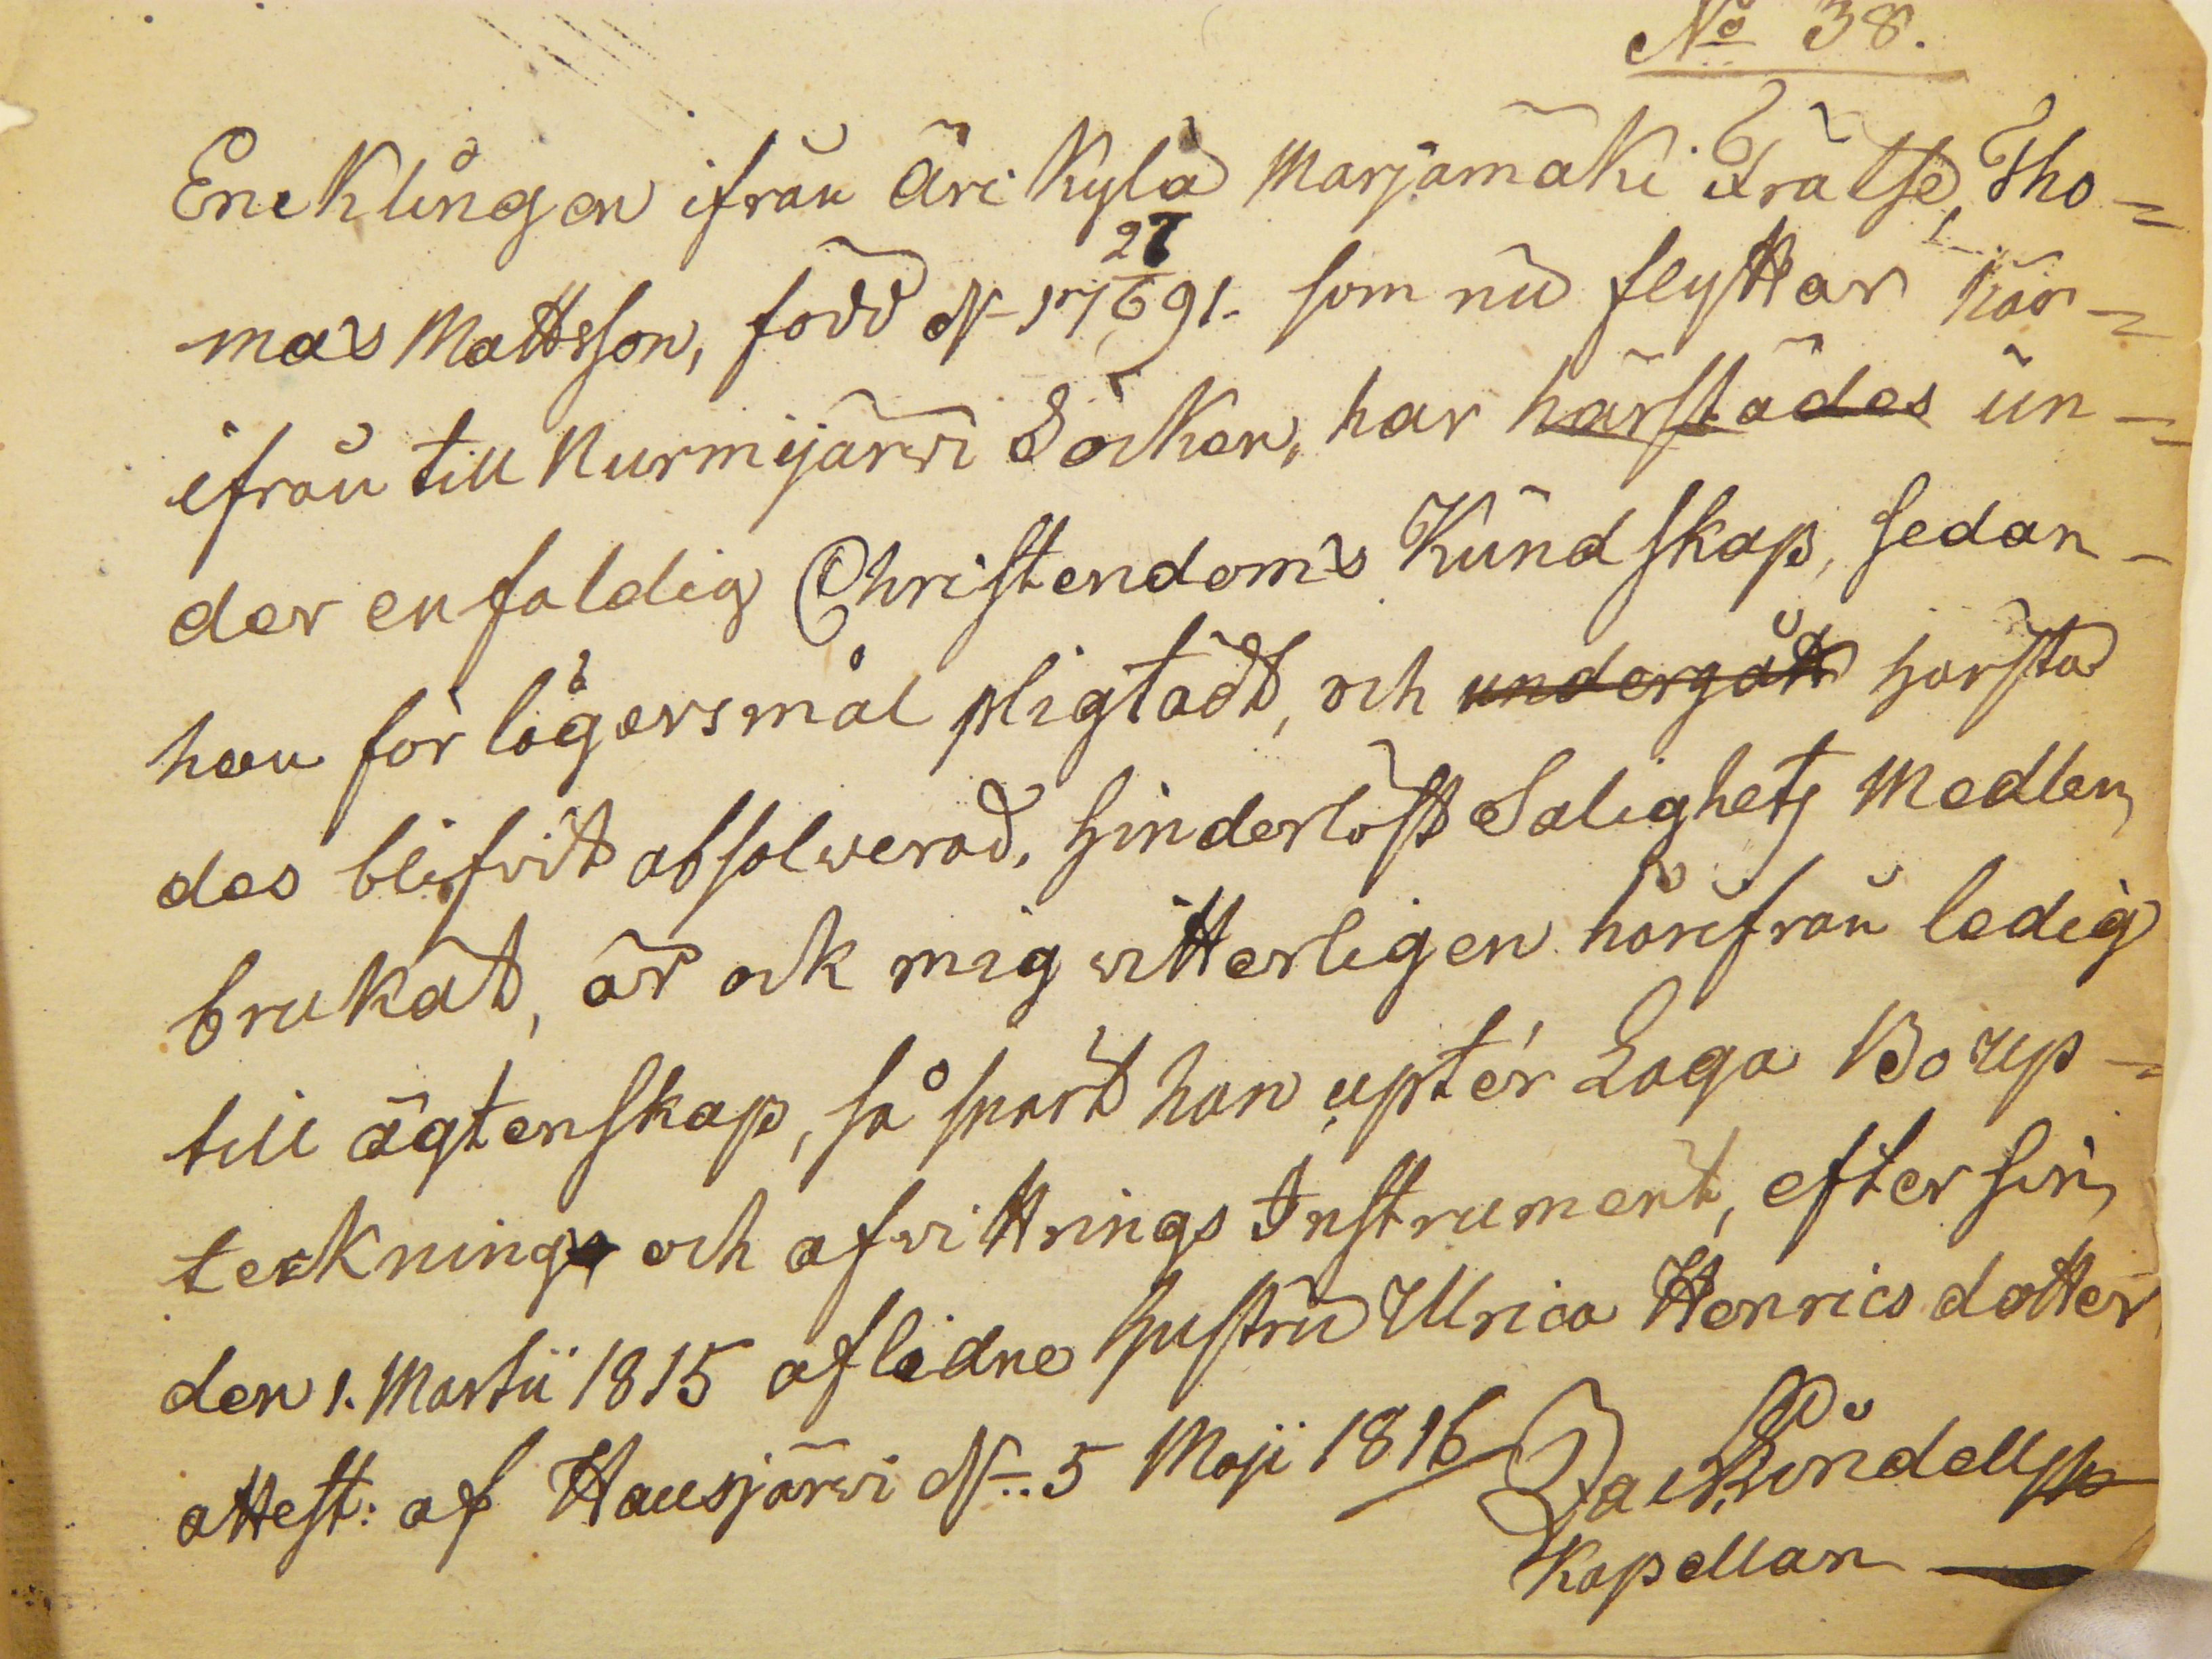 No 38.
Encklingen ifrån Äri Kylä Marjamäki Frälse, Tho-
mas Mattsson, född d. 17 27/6 91. som nu flyttar här-
ifrån till Nurmijärwi Socken, har härstädes un-
der enfaldig Christendoms Kundskap, sedan
han för lägersmål pligtadt, och undergått härstä
des blifvit absolwerad, hinderlöst Salighets Medlen
brukat, är ock mig witterligen härifrån ledig
till ägtenskap, så snart han upter Laga Boup-
teckning och afwittrings Instrument, efter sin
den 1. Martii 1815 aflidne hustru Ulrica Henricsdotter
attest: af Hausjärwi d. 5 Maji 1816
Kapellan